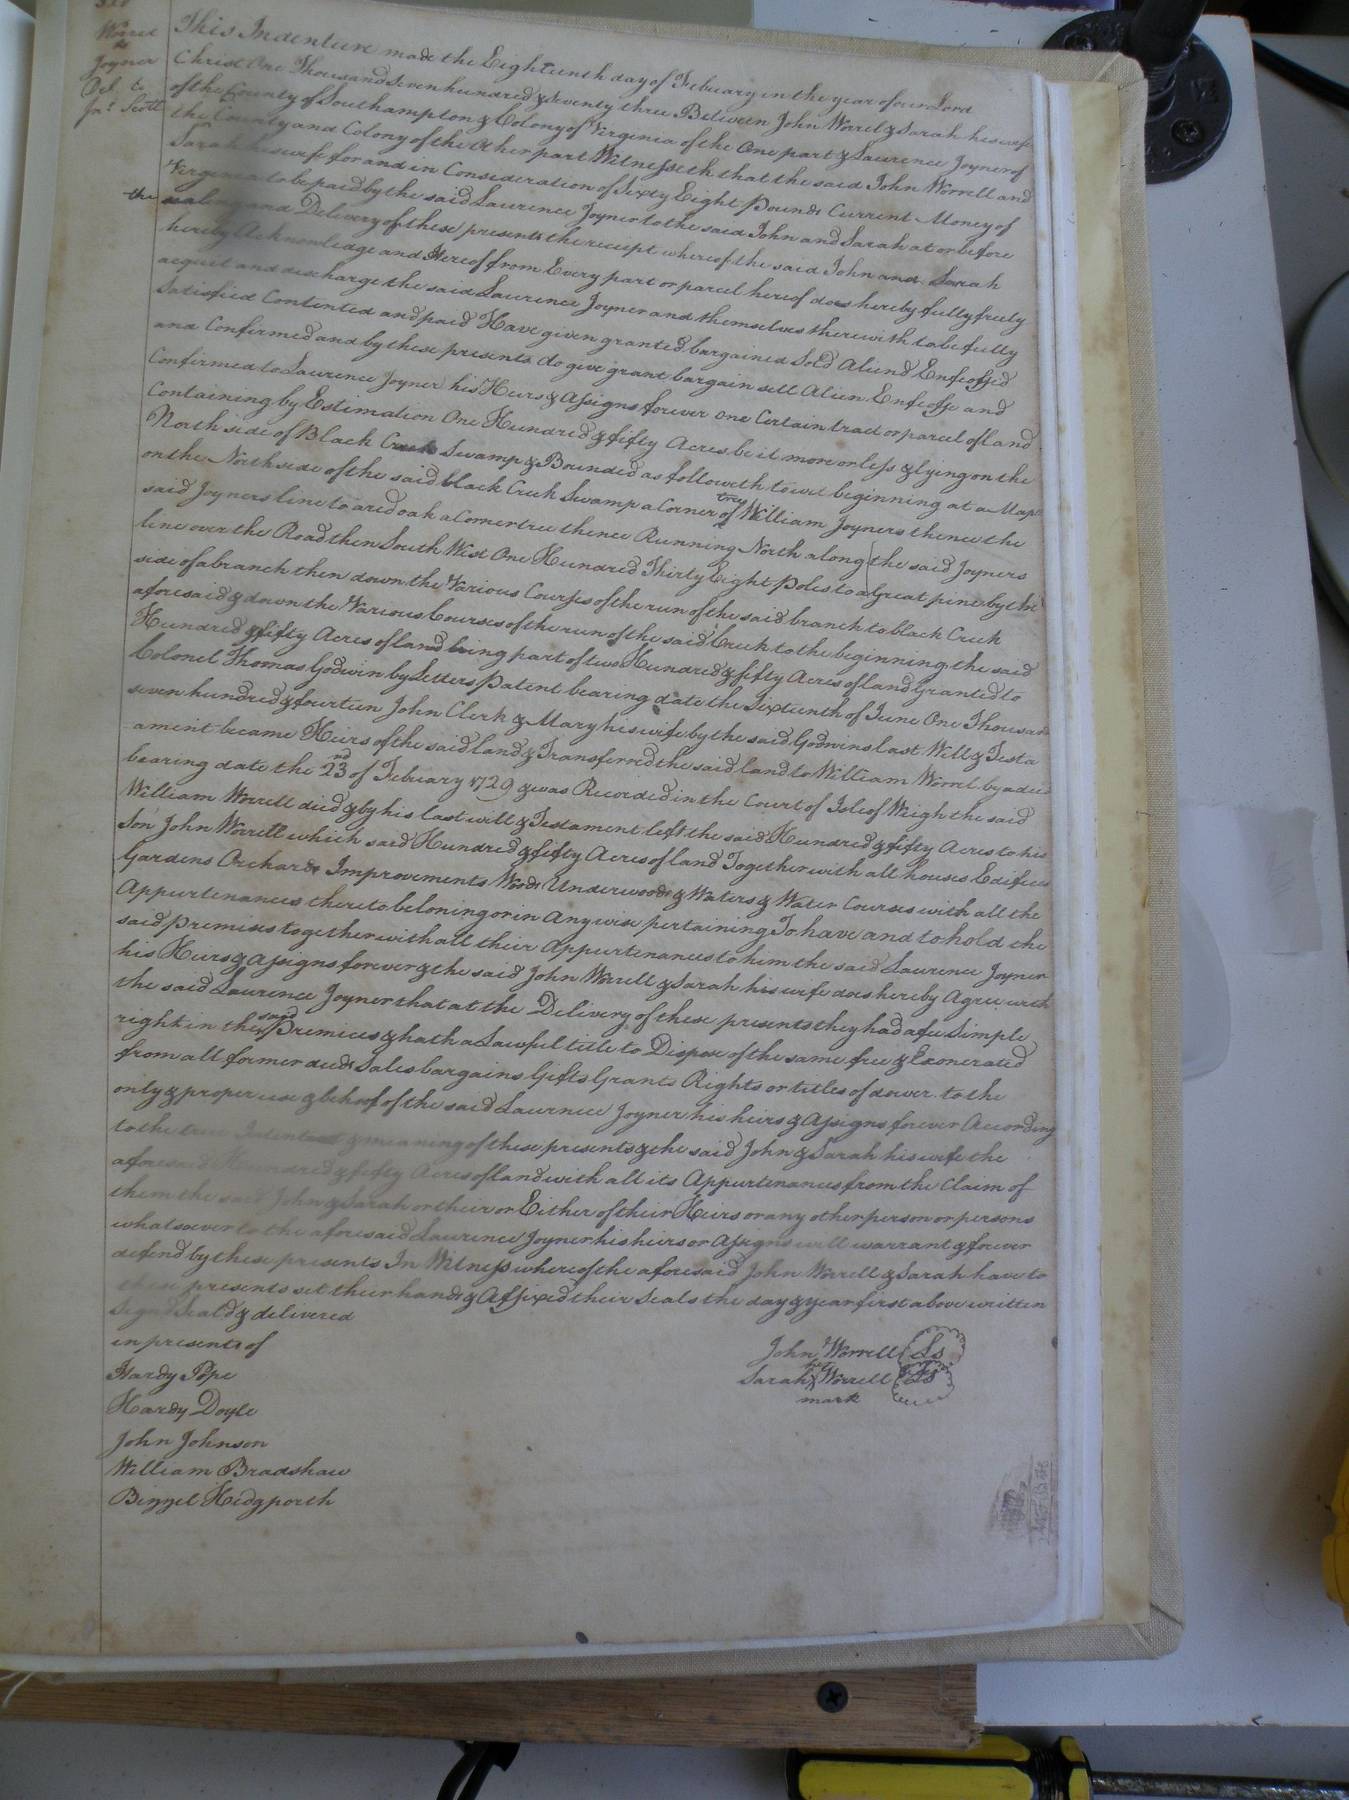 Worrel
to
Joyner
Del. to
Jn.o Scott
This Indenture made the Eighteenth day of February in the year of our Lord
Christ One Thousand Seven hundred & Seventy three Between John Worrel & Sarah his wife
of the County of Southampton & Colony of Virginia of the One part & Laurence Joyner of
the County and Colony of the other part Witnesseth that the said John Worrell and
Sarah his wife for and in Consideration of Sixty Eight Pounds Current Money of
Virginia to be paid by the said Laurence Joyner to the said John and Sarah at or before
the sealing and Delivery of these presents the receipt whereof the said John and Sarah
hereby Acknowledge and thereof from Every part or parcel hereof does hereby fully freely
acquit and discharge the said Laurence Joyner and themselves therewith to be fully
Satisfied Contented and paid Have given granted bargained Sold Aliend Enfeoffed
and Confirmed and by these presents do give grant bargain sell Alien Enfeoffe and
Confirmed to Laurence Joyner his Heirs & Assigns forever one Certain tract or parcel of land
Containing by Estimation One Hundred & fifty Acres be it more or less & lying on the
North side of Black Creek Swamp & Bounded as followeth towit beginning at a Maple
on the North side of the said black Creek Swamp a Corner tree of William Joyners thence the
said Joyners line to a red oak a Corner tree thence Running North along the said Joyners
line over the Road then South West One Hundred Thirty Eight Poles to a Great pine by the
side of a branch then down the Various Courses of the run of the said branch to black Creek
aforesaid & down the Various Courses of the run of the said Creek to the beginning the said
Hundred & fifty Acres of land being part of two Hundred & fifty Acres of land Granted to
Colonel Thomas Godwin by Letters Patent bearing date the Sixteenth of June One Thousand
seven hundred & fourteen John Clerk & Mary his wife by the said Godwins last Will & Testa
ament became Heirs of the said land & Transferred the said land to William Worrel by a deed
bearing date the 23rd of Febuary 1729 & was Recorded in the Court of Isle of Weigh the said
William Worrell died & by his last will & Testament left the said Hundred & fifty Acres to his
Son John Worrell which said Hundred & fifty Acres of land Together with all houses Edifices
Gardens Orchards Improvements Woods Underwoods & Waters & Water Courses with all the
Appurtenances thereto beloning or in Any wise pertaining To have and to hold the
said premises together with all their Appurtenances to him the said Laurence Joyner
his Heirs & Assigns forever & the said John Worrell & Sarah his wife does hereby Agree with
the said Laurence Joyner that at the Delivery of these presents they had a fee Simple
right in the said Premices & hath a Lawful title to Dispose of the same free & Exonerated
from all former deeds Sales bargains Gifts Grants Rights or titles of dower to the
only & proper use & behoof of the said Laurnce Joyner his heirs & Assigns forever According
to the true Intent & meaning of these presents & the said John & Sarah his wife the
aforesaid Hundred & fifty Acres of land with all its Appurtenances from the Claim of
them the said John & Sarah or their or Either of their Heirs or any other person or persons
whatsoever to the aforesaid Laurence Joyner his heirs or Assigns will warrant & forever
defend by these presents In Witness whereof the aforesaid John Worrell & Sarah have to
these presents set their hands & Affixed their Seals the day & year first above written
Signd Seald & delivered
in presents of
John Worrell Ls
Hardy Pope
her
Sarah X Worrell Ls
mark
Hardy Doyle
John Johnson
William Bradshaw